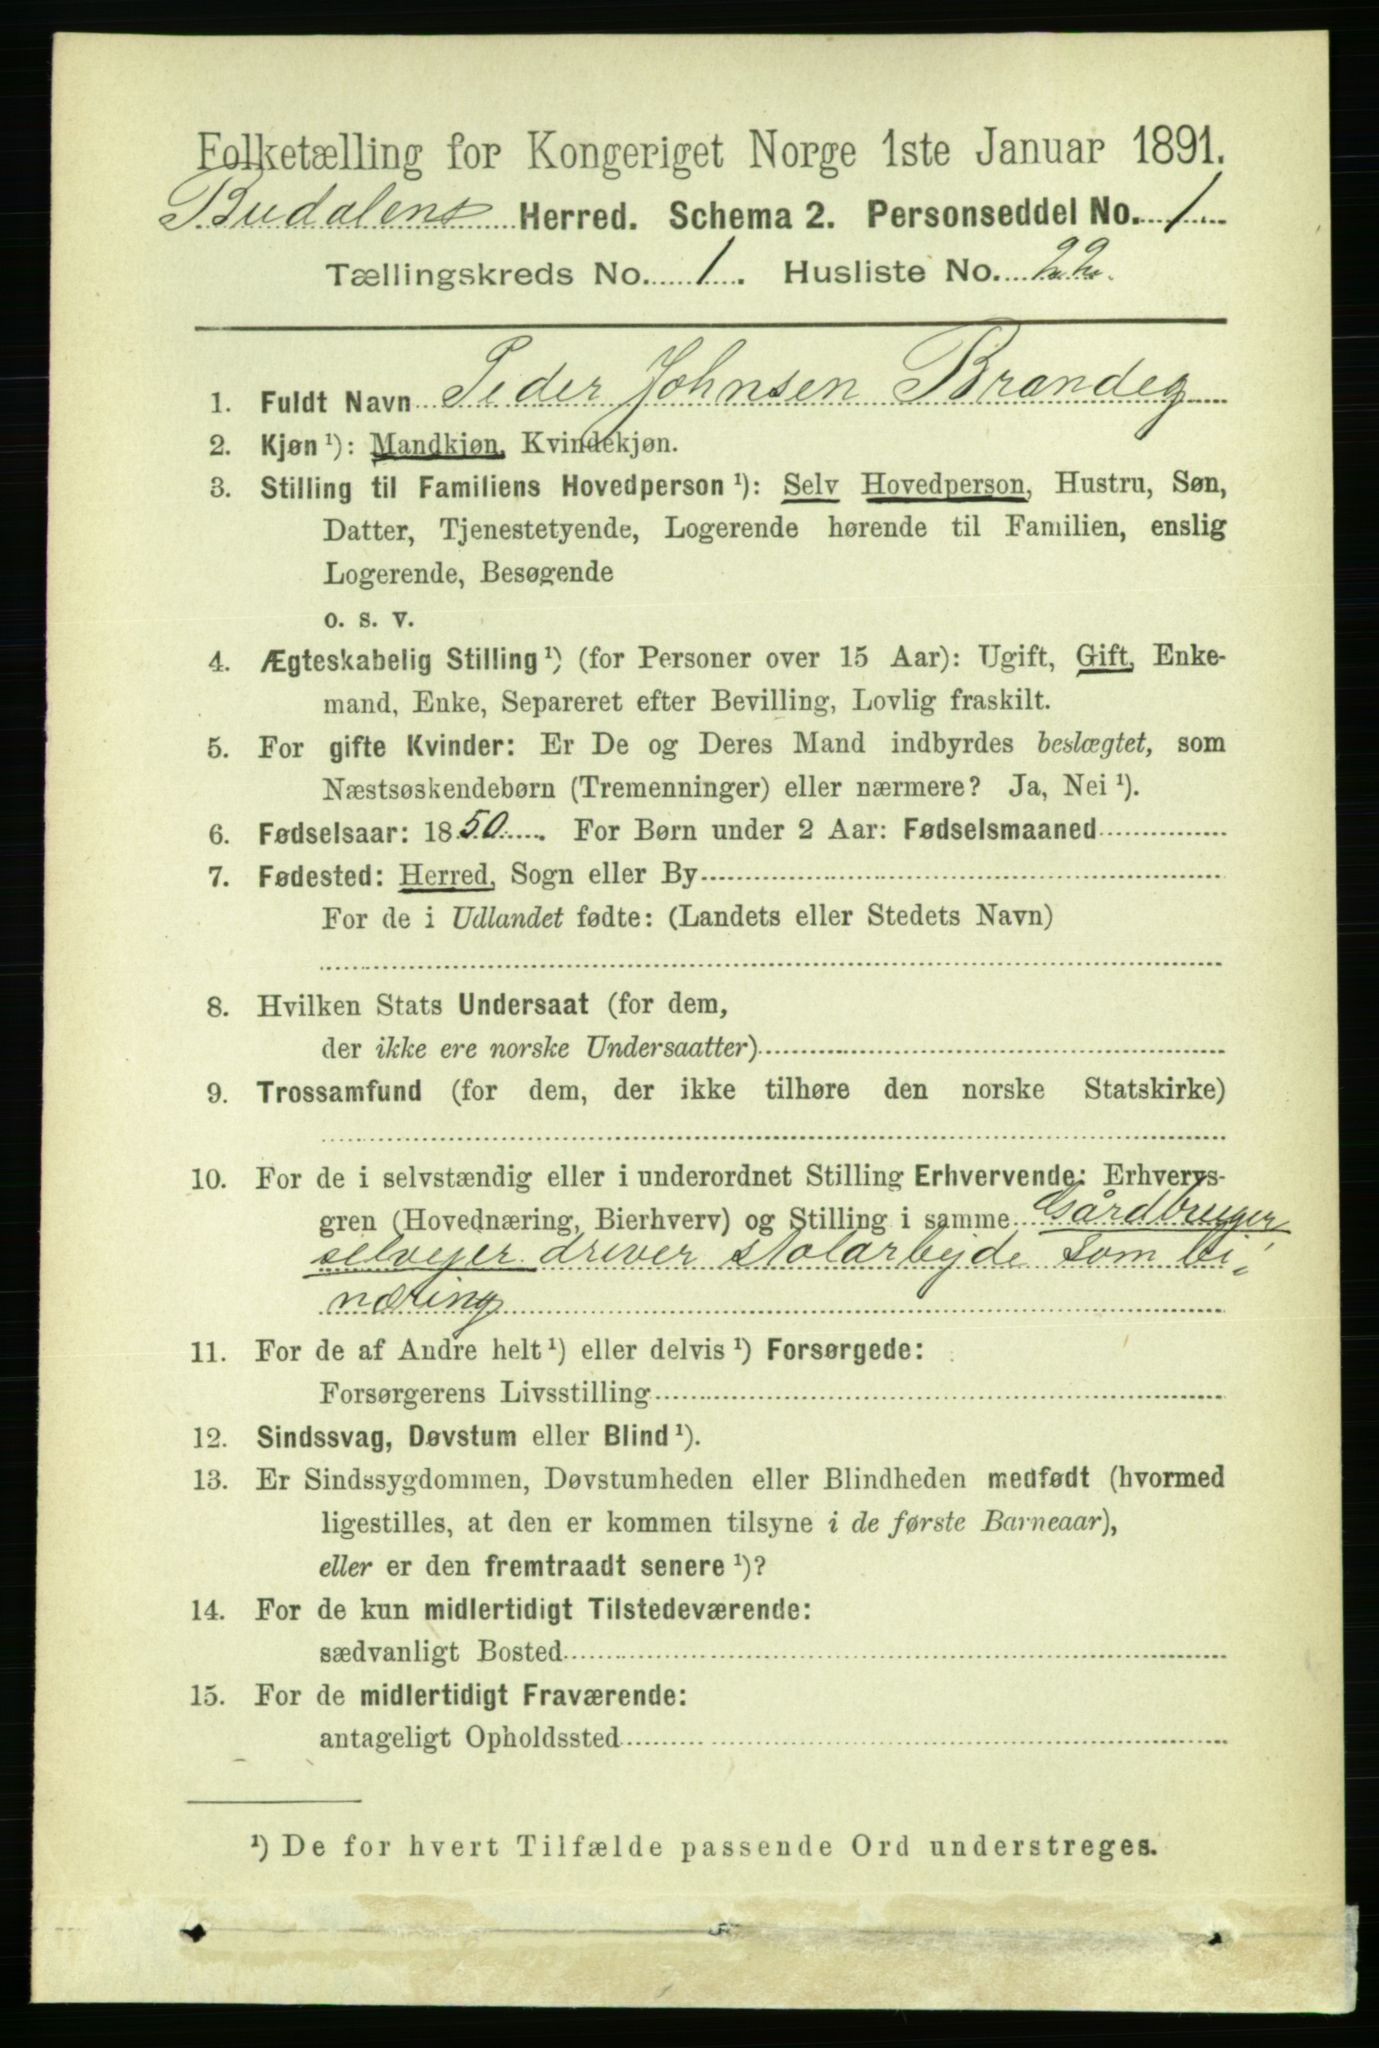 Folketælling for Kongeriget Norge 1ste Januar 1891.
Budalens Herred. Schema 2. Personseddel No. 1
Tællingskreds No. 1. Husliste No. 22.
1. Fuldt Navn Peder Johnsen Brandeg
2. Kjøn ¹): Mandkjøn, Kvindekjøn.
3. Stilling til Familiens Hovedperson ¹): Selv Hovedperson, Hustru, Søn,
Datter, Tjenestetyende, Logerende hørende til Familien, enslig
Logerende, Besøgende
o. s. v.
4. Ægteskabelig Stilling ¹) (for Personer over 15 Aar): Ugift, Gift, Enke-
mand, Enke, Separeret efter Bevilling, Lovlig fraskilt.
5. For gifte Kvinder: Er De og Deres Mand indbyrdes beslægtet, som
Næstsøskendebørn (Tremenninger) eller nærmere? Ja, Nei ¹).
6. Fødselsaar: 1850. For Børn under 2 Aar: Fødselsmaaned
7. Fødested: Herred, Sogn eller By
For de i Udlandet fødte: (Landets eller Stedets Navn)
8. Hvilken Stats Undersaat (for dem,
der ikke ere norske Undersaatter)
9. Trossamfund (for dem, der ikke tilhøre den norske Statskirke)
10. For de i selvstændig eller i underordnet Stilling Erhvervende: Erhvervs-
gren (Hovednæring, Bierhverv) og Stilling i samme Gårdbruger
selvejer driver stolarbejde som bi-
næring
11. For de af Andre helt ¹) eller delvis ¹) Forsørgede:
Forsørgerens Livsstilling
12. Sindssvag, Døvstum eller Blind ¹).
13. Er Sindssygdommen, Døvstumheden eller Blindheden medfødt (hvormed
ligestilles, at den er kommen tilsyne i de første Barneaar),
eller er den fremtraadt senere ¹)?
14. For de kun midlertidigt Tilstedeværende:
sædvanligt Bosted
15. For de midlertidigt Fraværende:
antageligt Opholdssted
¹) De for hvert Tilfælde passende Ord understreges.